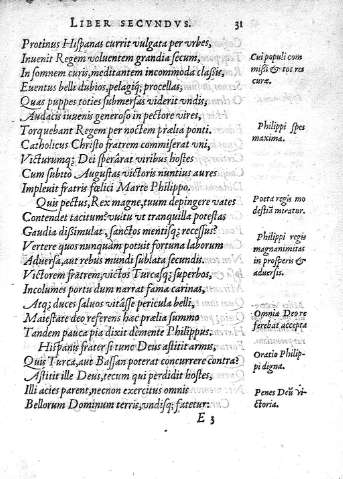 LIBER SECVNDVS. 31
Protinus Hispanas currit vulgata per vrbes,
Inuenit Regem voluentem grandia secum,
In somnem curis, meditantem incommoda classis,
Euentus belli dubios, pelagiq; procellas,
Quas puppes toties submersas viderit vndis,
Audacis iuuenis generoso in pectore vires,
Torquebant Regem per noctem prælia ponti.
Catholicus Christo fratrem commiserat vni,
Victurumq; Dei sperârat viribus hostes
Cum subitò Augustas victoris nuntius aures
Impleuit fratris fœlici Marte Philippo.
Quis pectus, Rex magne, tuum depingere vates
Contendet tacitum? vultu vt tranquilla potestas
Gaudia dissimulat, sanctos mentisq; recessus?
Vertere quos nunquàm potuit fortuna laborum
Aduersa, aut rebus mundi sublata secundis.
Victorem fratrem, victos Turcasq; superbos,
Incolumes portu dum narrat fama carinas,
Atq; duces saluos vitâsse pericula belli,
Maiestate deo referens hac prælia summo
Tandem pauca pia dixit de mente Philippus.
Hispanis frater si tunc Deus astitit armis,
Quis Turca, aut Bassan poterat concurrere contra?
Astitit ille Deus, tecum qui perdidit hostes,
Illi acies parent, necnon exercitus omnis
Bellorum Dominum terris, vndisq; fatetur:
E 3
Cui populi com
missi & tot res
curæ.
Philippi spes
maxima.
Poeta regis mo
destiã miratur.
Philippi regis
magnanimitas
in prosperis &
aduersis.
Omnia Deo re
ferebat accepta
Oratio Philip-
pi digna.
Penes Deũ vi-
ctoria.